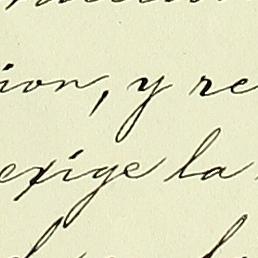 ion, y re
exige la